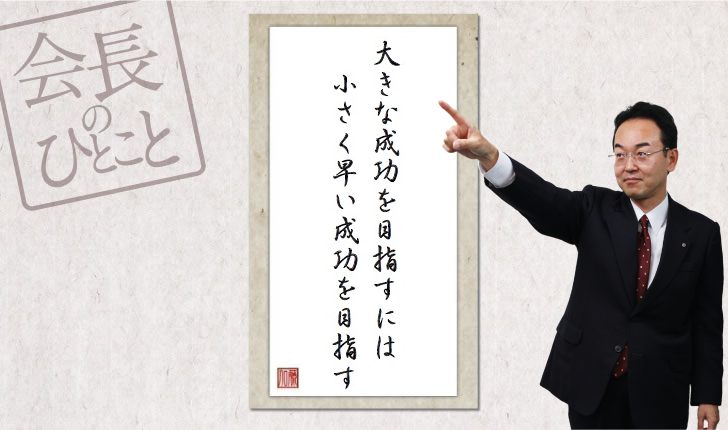 会長
の
ひとこと
大きな成功を目指すには
小さく早い成功を目指す